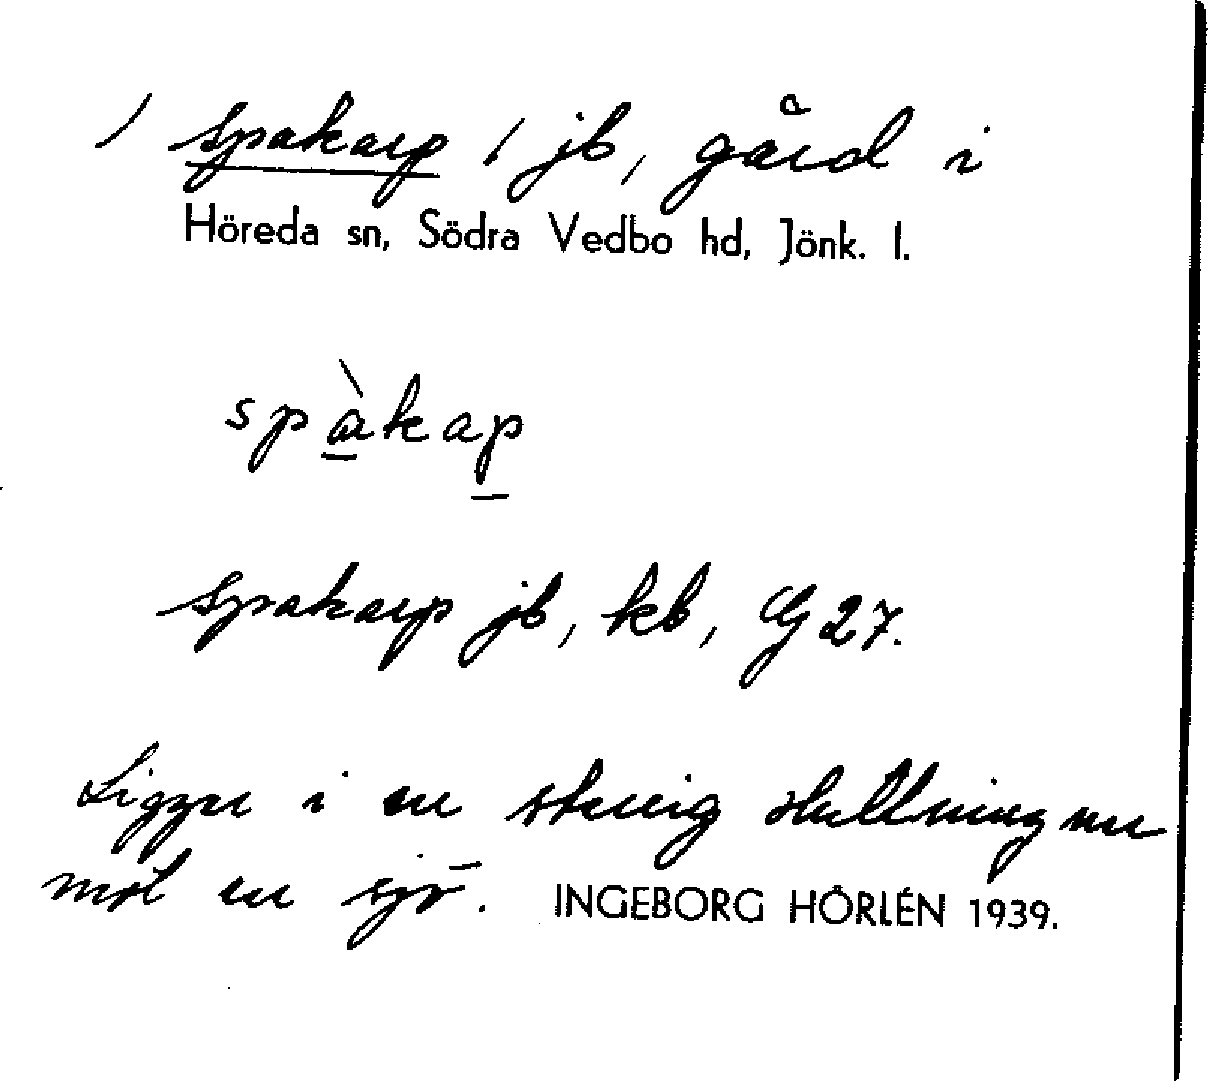 / Spakarp / jb, gård i
Höreda sn, Södra Vedbo hd, Jönk. l.
spàkap
Spakarp jb, kb, G 27.
Ligger i en stenig sluttning ner
mot en sjö. INGEBORG HÖRLÉN 1939.